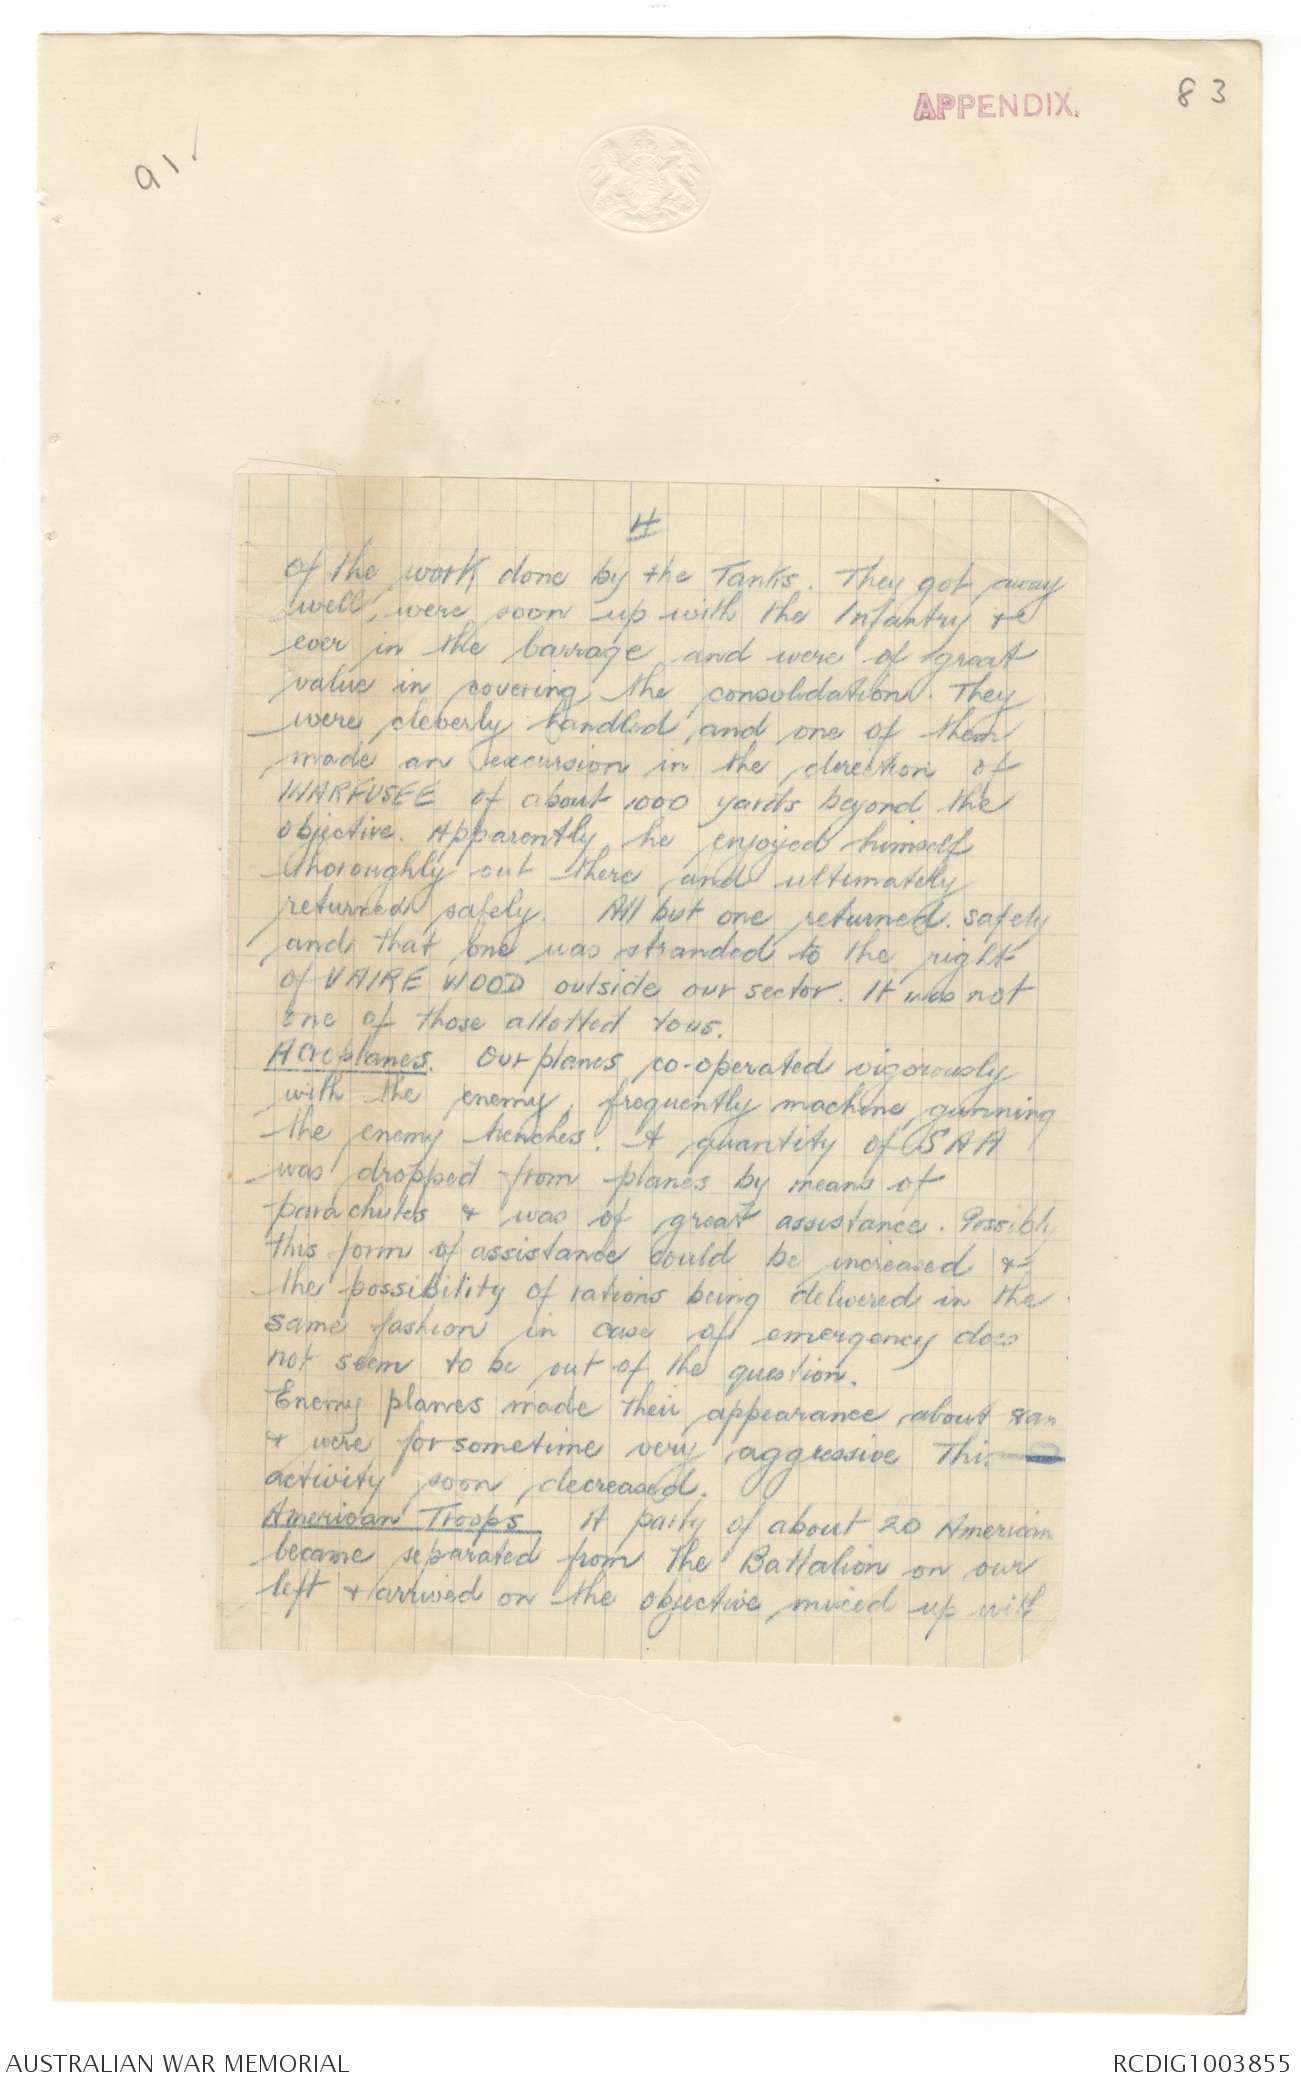 APPENDIX.
83
91.
4
of the work done by the Tanks. They got away
well, were soon up with the Infantry &
ever in the barrage and were of great
value in covering the consolidation. They
were cleverly handled and one of them
made an excursion in the direction of
WARFUSEE of about 1000 yards beyond the
objective. Apparently he enjoyed himself
thoroughly out there and ultimately
returned safely. All but one returned safely
and that one was stranded to the right
of VAIRE WOOD outside our sector. It was not
one of those allotted to us.
Aeroplanes. Our planes co-operated vigorously
with the enemy, frequently machine gunning
the enemy trenches. A quantity of SAA
was dropped from planes by means of
parachutes & was of great assistance. Possibly
this form of assistance could be increased &
the possibility of rations being delivered in the
same fashion in case of emergency does
not seem to be out of the question.
Enemy planes made their appearance about
& were for sometime very aggressive This
activity soon decreased.
American Troops A party of about 20 American
became separated from the Battalion on our
left & arrived on the objective mixed up with
AUSTRALIAN WAR MEMORIAL
RCDIG1003855